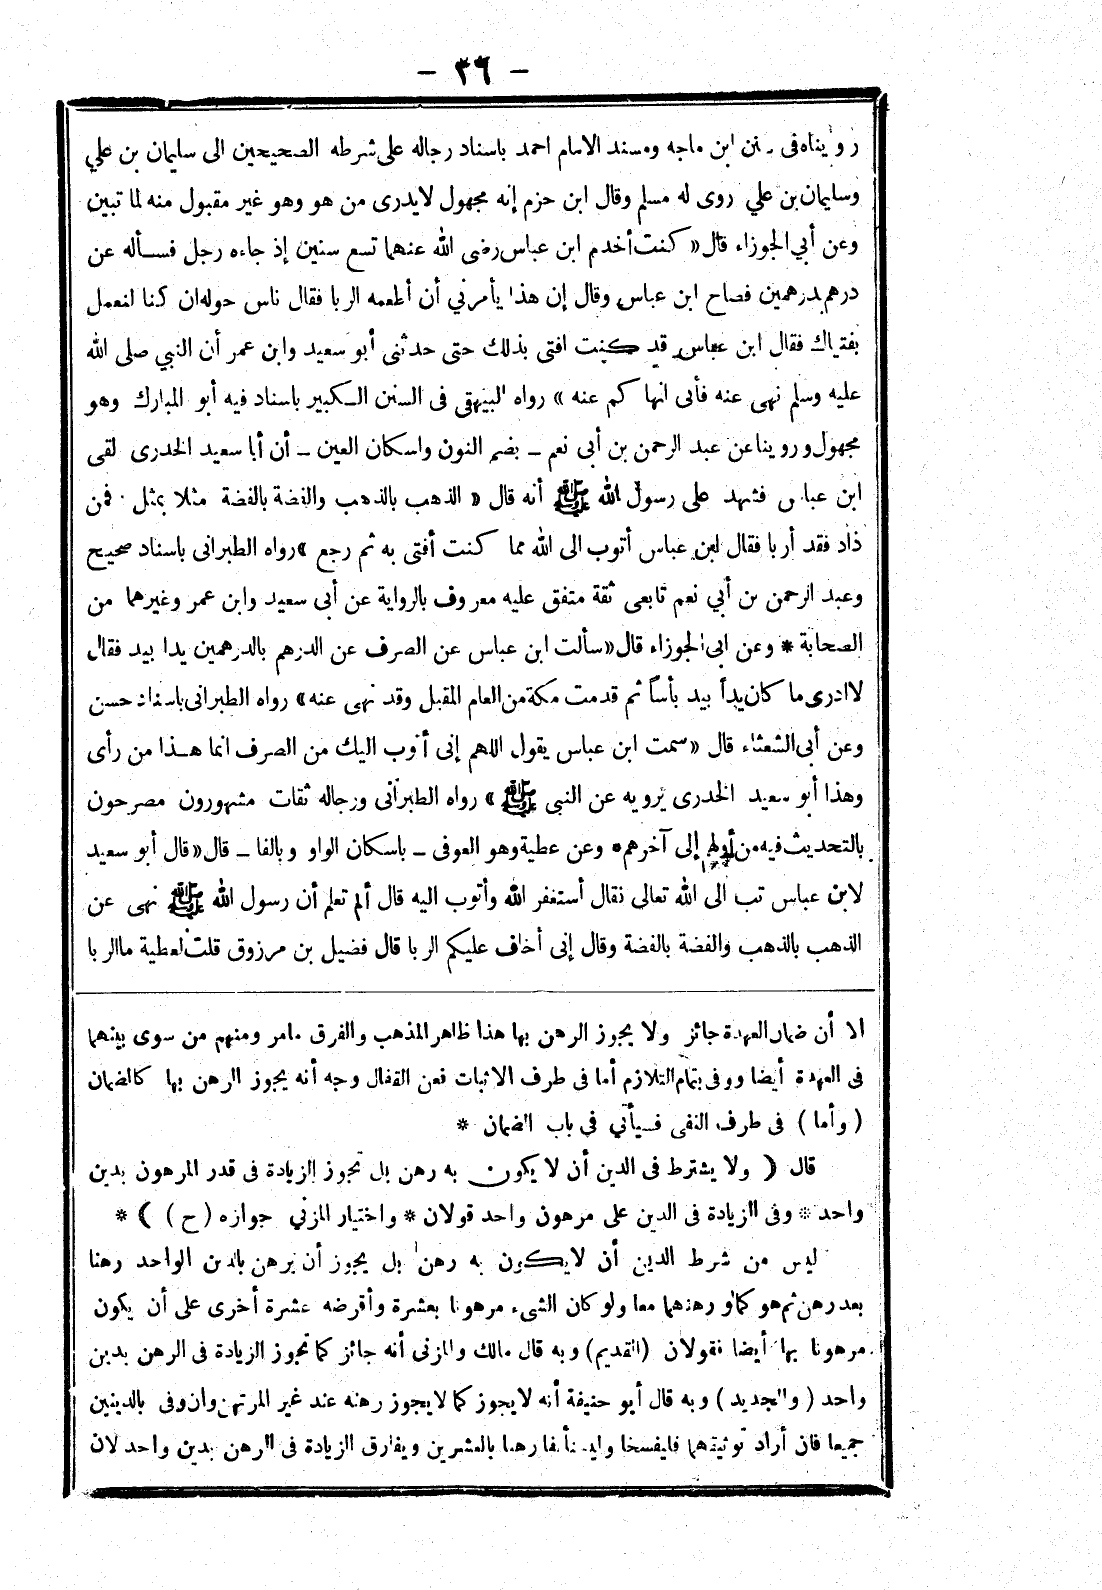 - ٣٦ -
رويناه فى سنن ابن ماجه ومسند الامام احمد باسناد رجاله على شرطه الصحيحين الى سليمان بن علي
وسليمان بن علي روى له مسلم وقال ابن حزم إنه مجهول لايدرى من هو وهو غير مقبول منه لما تبين
وعن أبي الجوزاء قال « كنت أخدم ابن عباس رضى الله عنهما تسع سنين إذ جاءه رجل فسأله عن
درهم بدرهمين فصاح ابن عباس وقال إن هذا يأمرني أن أطعمه الربا فقال ناس حوله ان كنا لنعمل
بفتياك فقال ابن عباس قد كنت افتى بذلك حتى حدثنى أبو سعيد وابن عمر أن النبي صلى الله
عليه وسلم نهى عنه فأنى انها كم عنه » رواه البيهقى فى السنن الكبير باسناد فيه أبو المبارك وهو
مجهول وروينا عن عبد الرحمن بن أبي نعم - بضم النون واسكان العين - أن أبا سعيد الخدرى لقى
ابن عباس فشهد على رسول الله ﷺ أنه قال « الذهب بالذهب والفضة بالفضة مثلا بمثل فمن
زاد فقد أربا فقال ابن عباس أتوب الى الله مما كنت أفتى به ثم رجع » رواه الطبرانى باسناد صحيح
وعبد الرحمن بن أبي نعم تابعى ثقة متفق عليه معروف بالرواية عن أبى سعيد وابن عمر وغيرهما من
الصحابة * وعن ابى الجوزاء قال « سألت ابن عباس عن الصرف عن الدرهم بالدرهمين يدا بيد فقال
لا ادرى ما كان يدأ بيد بأساً ثم قدمت مكة من العام المقبل وقد نهى عنه » رواه الطبرانى باسناد حسن
وعن أبى الشعثاء قال « سمعت ابن عباس يقول اللهم إنى أتوب اليك من الصرف انما هذا من رأى
وهذا أبو سعيد الخدرى يرويه عن النبى ﷺ » رواه الطبرانى ورجاله ثقات مشهورون مصرحون
بالتحديث فيه من أولهم إلى آخرهم * وعن عطية وهو العوفى - باسكان الواو وبالفا - قال « قال أبو سعيد
لابن عباس تب الى الله تعالى فقال أستغفر الله وأتوب اليه قال ألم تعلم أن رسول الله ﷺ نهى عن
الذهب بالذهب والفضة بالفضة وقال إنى أخاف عليكم الربا قال فضيل بن مرزوق قلت لعطية ما الربا
الا أن ضمان العهدة جائز ولا يجوز الرهن بها هذا ظاهر المذهب والفرق مامر ومنهم من سوى بينهما
فى العهدة أيضا ووفى بتمام التلازم أما فى طرف الاثبات فعن القفال وجه أنه يجوز الرهن بها كالضمان
( وأما ) فى طرف النفى فسيأتي في باب الضمان *
قال ( ولا يشترط فى الدين أن لا يكون به رهن بل تجوز الزيادة فى قدر المرهون بدين
واحد * وفى الزيادة فى الدين على مرهون واحد قولان * واختيار المزني جوازه ( ح ) ) *
ليس من شرط الدين أن لايكون به رهن بل يجوز أن يرهن بالدين الواحد رهنا
بعد رهن ثم هو كما لو رهنهما معا ولو كان الشىء مرهونا بعشرة وأقرضه عشرة أخرى على أن يكون
مرهونا بها أيضا فقولان ( القديم ) وبه قال مالك والمزنى أنه جائز كما تجوز الزيادة فى الرهن بدين
واحد ( والجديد ) وبه قال أبو حنيفة أنه لا يجوز كما لا يجوز رهنه عند غير المرتهن وان وفى بالدينين
جميعا فان أراد توثيقهما فليفسخا وليستأنفا رهنا بالعشرين ويفارق الزيادة فى الرهن بدين واحد لان